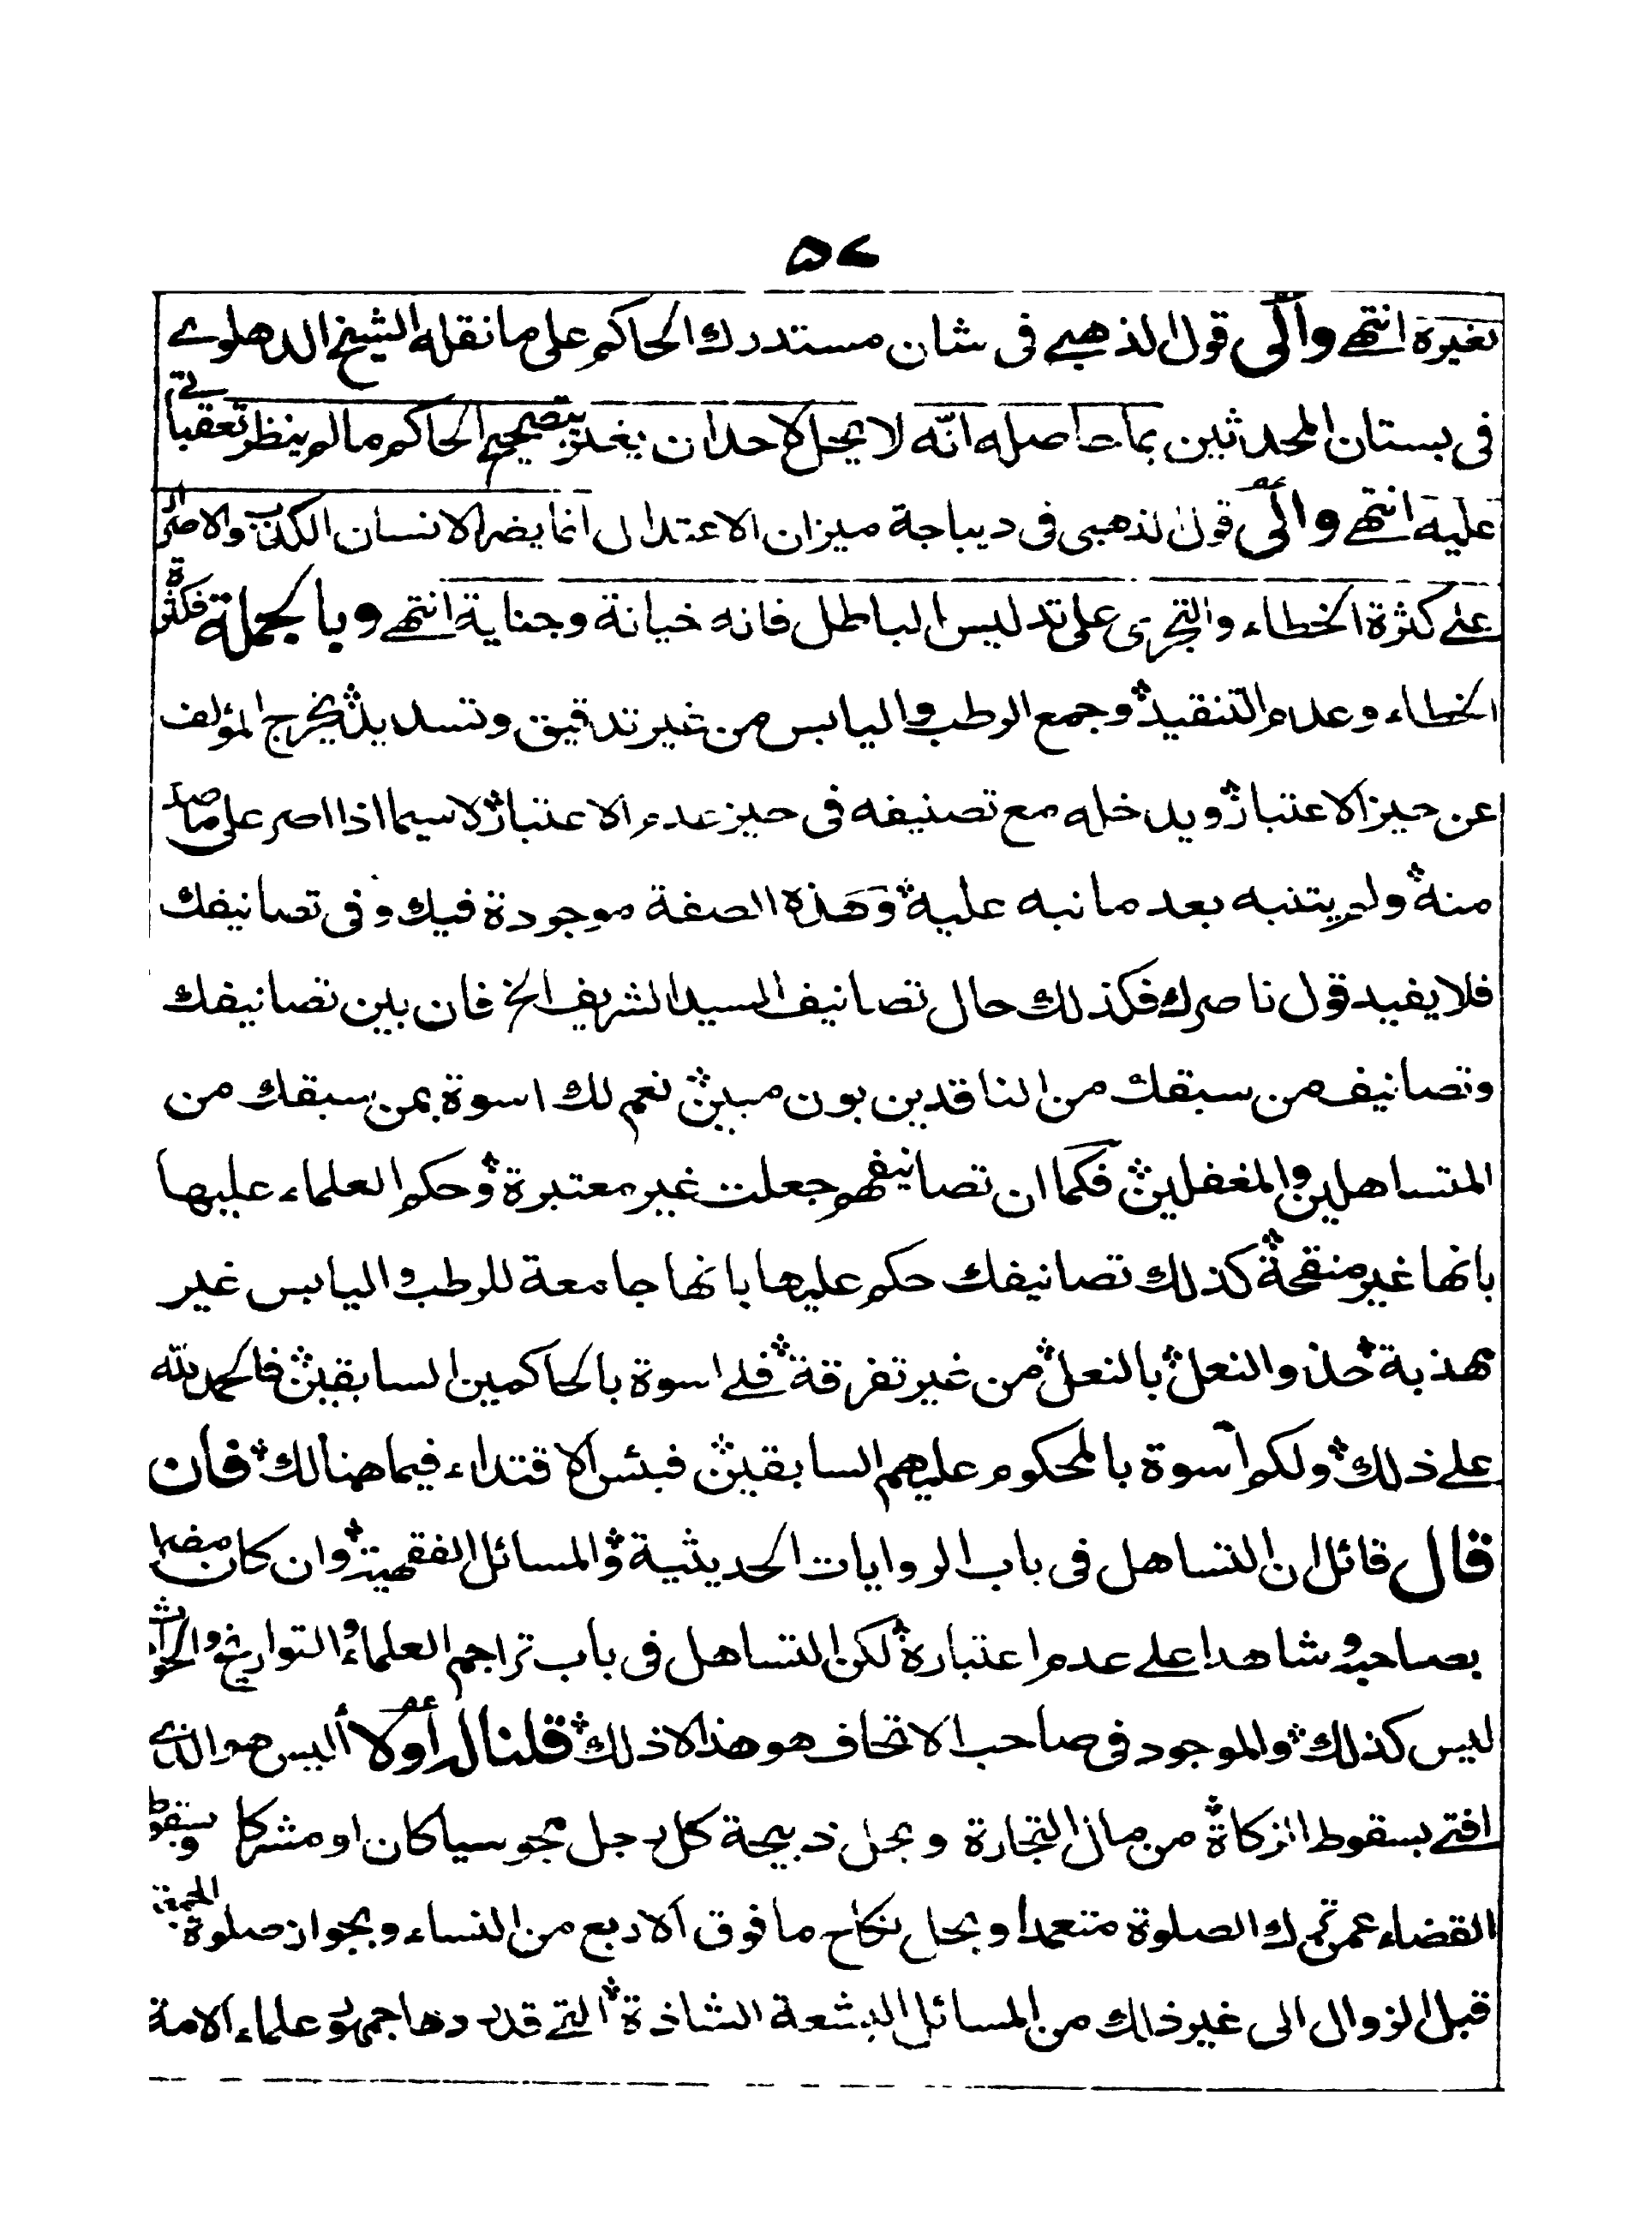 ۵۷
بغيره انتهى والى قول الذهبي فى شان مستدرك الحاكم على ما نقله الشيخ الدهلوے
فى بستان المحدثين بما حاصله انّه لا يحل لاحد ان يغتر بتصحيح الحاكم ما لم ينظر تعقباتى
عليه انتهى والى قول الذهبى فى ديباجة ميزان الاعتدال انما يضر الانسان الكذب والاصرار
على كثرة الخطاء والتجرى على تدليس الباطل فانه خيانة وجناية انتهى وبالجملة فكثرة
الخطاء وعدم التنقيد وجمع الرطب واليابس من غير تدقيق وتسديد يخرج المؤلف
عن حيز الاعتبار ويدخله مع تصنيفه فى حيز عدم الاعتبار لا سيما اذا اصر على ما صدر
منه ولم يتنبه بعد ما نبه عليه وهذه الصفة موجودة فيك وفى تصانيفك
فلا يفيد قول ناصرك فكذلك حال تصانيف السيد الشريف الخ فان بين تصانيفك
وتصانيف من سبقك من الناقدين بون مبين نعم لك اسوة بمن سبقك من
المتساهلين والمغفلين فكما ان تصانيفهم جعلت غير معتبرة وحكم العلماء عليها
بانها غير منقحة كذلك تصانيفك حكم عليها بانها جامعة للرطب واليابس غير
مهذبة حذو النعل بالنعل من غير تفرقة فلى اسوة بالحاكمين السابقين فالحمد لله
على ذلك ولكم اسوة بالمحكوم عليهم السابقين فبئس الاقتداء فيما هنالك فان
قال قائل ان التساهل فى باب الروايات الحديثية والمسائل الفقهية وان كان مضرا
بصاحبه وشاهدا على عدم اعتباره لكن التساهل فى باب تراجم العلماء والتواريخ والحوادث
ليس كذلك والموجود فى صاحب الاتحاف هو هذا لا ذلك قلنا له أولا أليس هو الذى
افتى بسقوط الزكاة من مال التجارة وبحل ذبيحة كل رجل مجوسيا كان او مشركا وبسقوط
القضاء عمن ترك الصلوة متعمدا وبحل نكاح ما فوق الاربع من النساء وبجواز صلوة الجمعة
قبل الزوال الى غير ذلك من المسائل البشعة الشاذة التى قد ردها جمهور علماء الامة